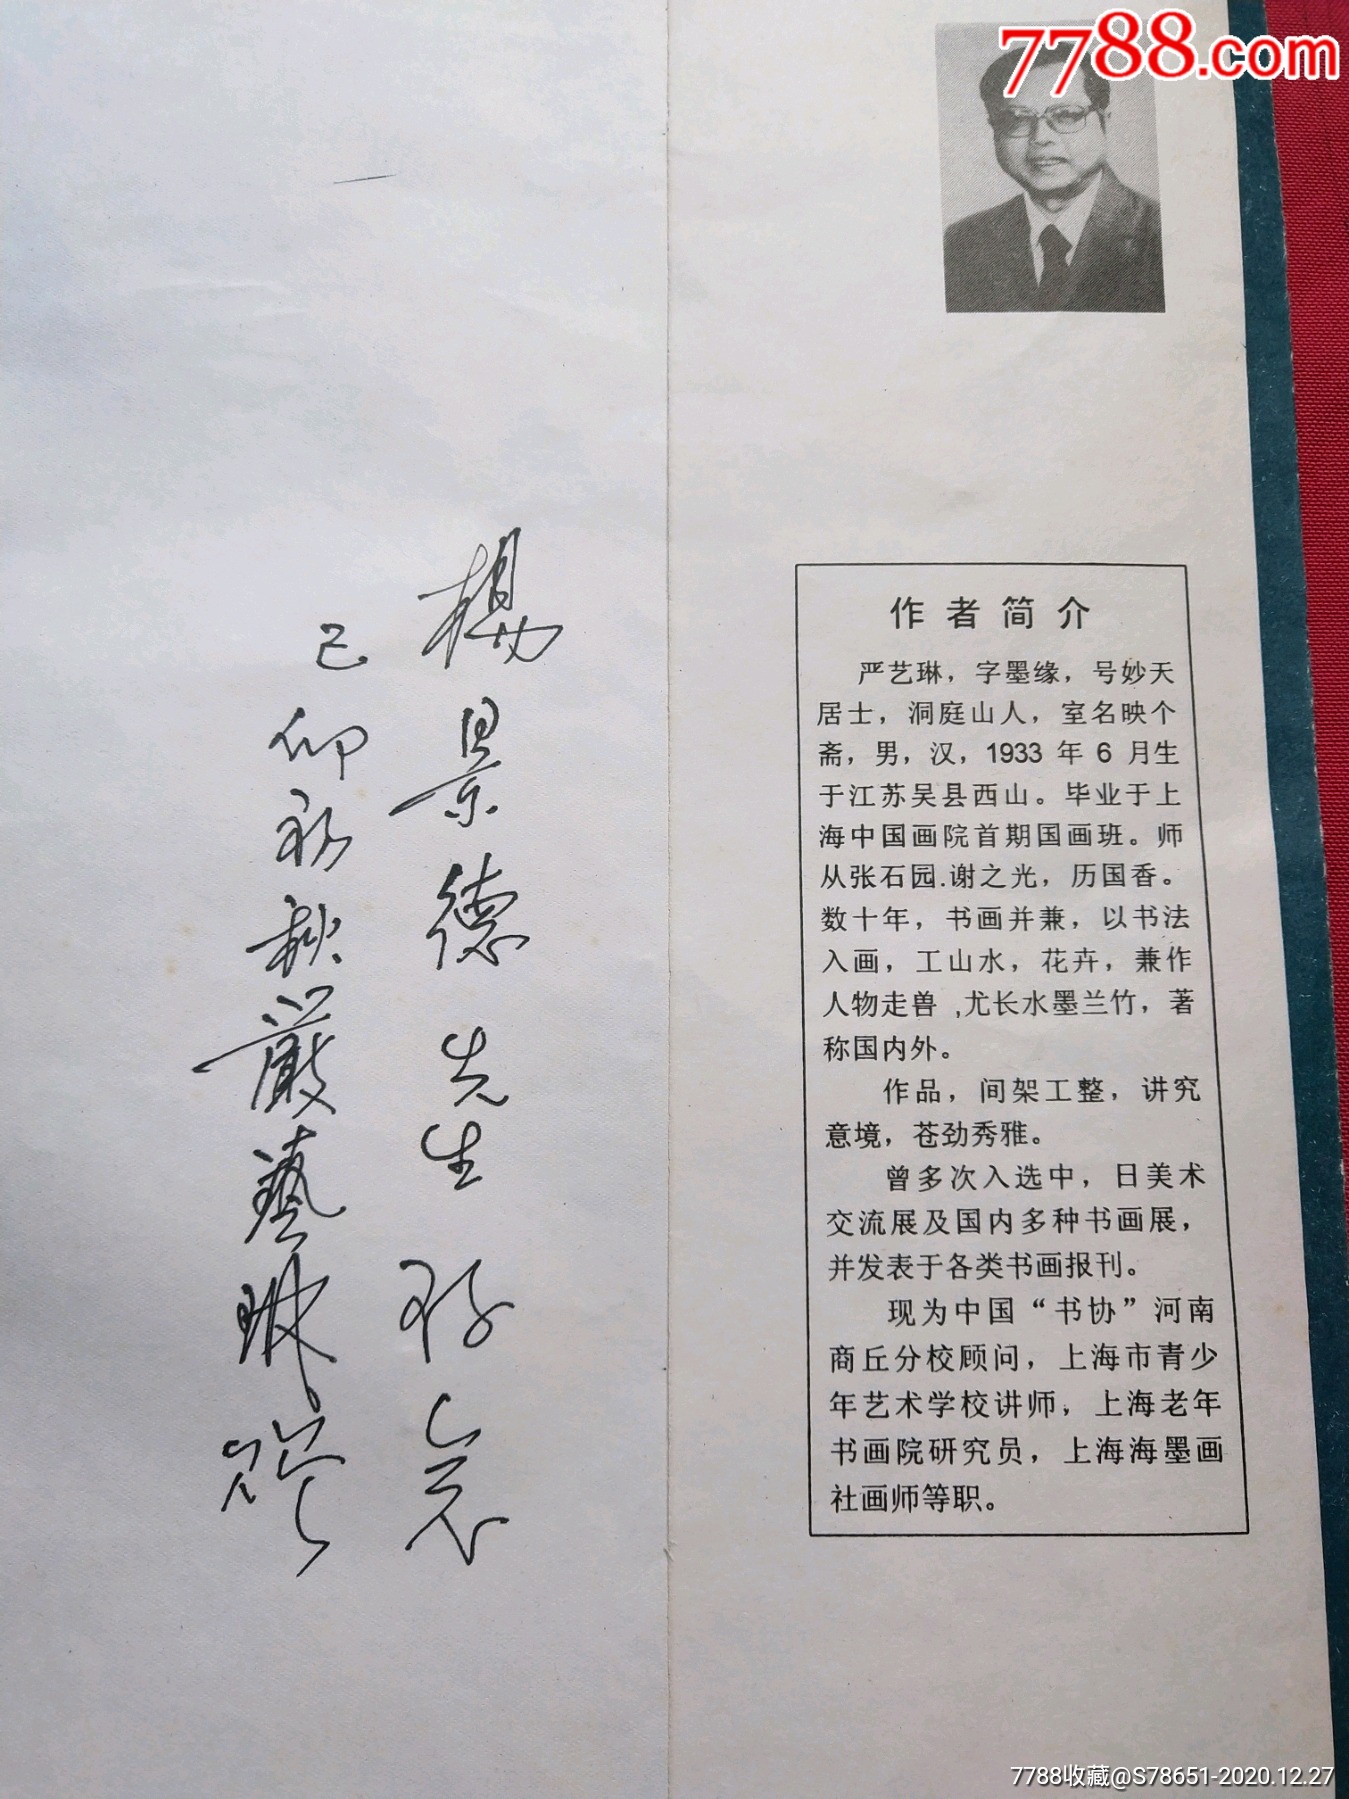 7788.com
楊景德先生存念
己卯初秋嚴藝琳贈
作者简介
严艺琳，字墨缘，号妙天
居士，洞庭山人，室名映个
斋，男，汉，1933 年 6 月生
于江苏吴县西山。毕业于上
海中国画院首期国画班。师
从张石园.谢之光，历国香。
数十年，书画并兼，以书法
入画，工山水，花卉，兼作
人物走兽 ,尤长水墨兰竹，著
称国内外。
作品，间架工整，讲究
意境，苍劲秀雅。
曾多次入选中，日美术
交流展及国内多种书画展，
并发表于各类书画报刊。
现为中国“书协”河南
商丘分校顾问，上海市青少
年艺术学校讲师，上海老年
书画院研究员，上海海墨画
社画师等职。
7788收藏@S78651-2020.12.27